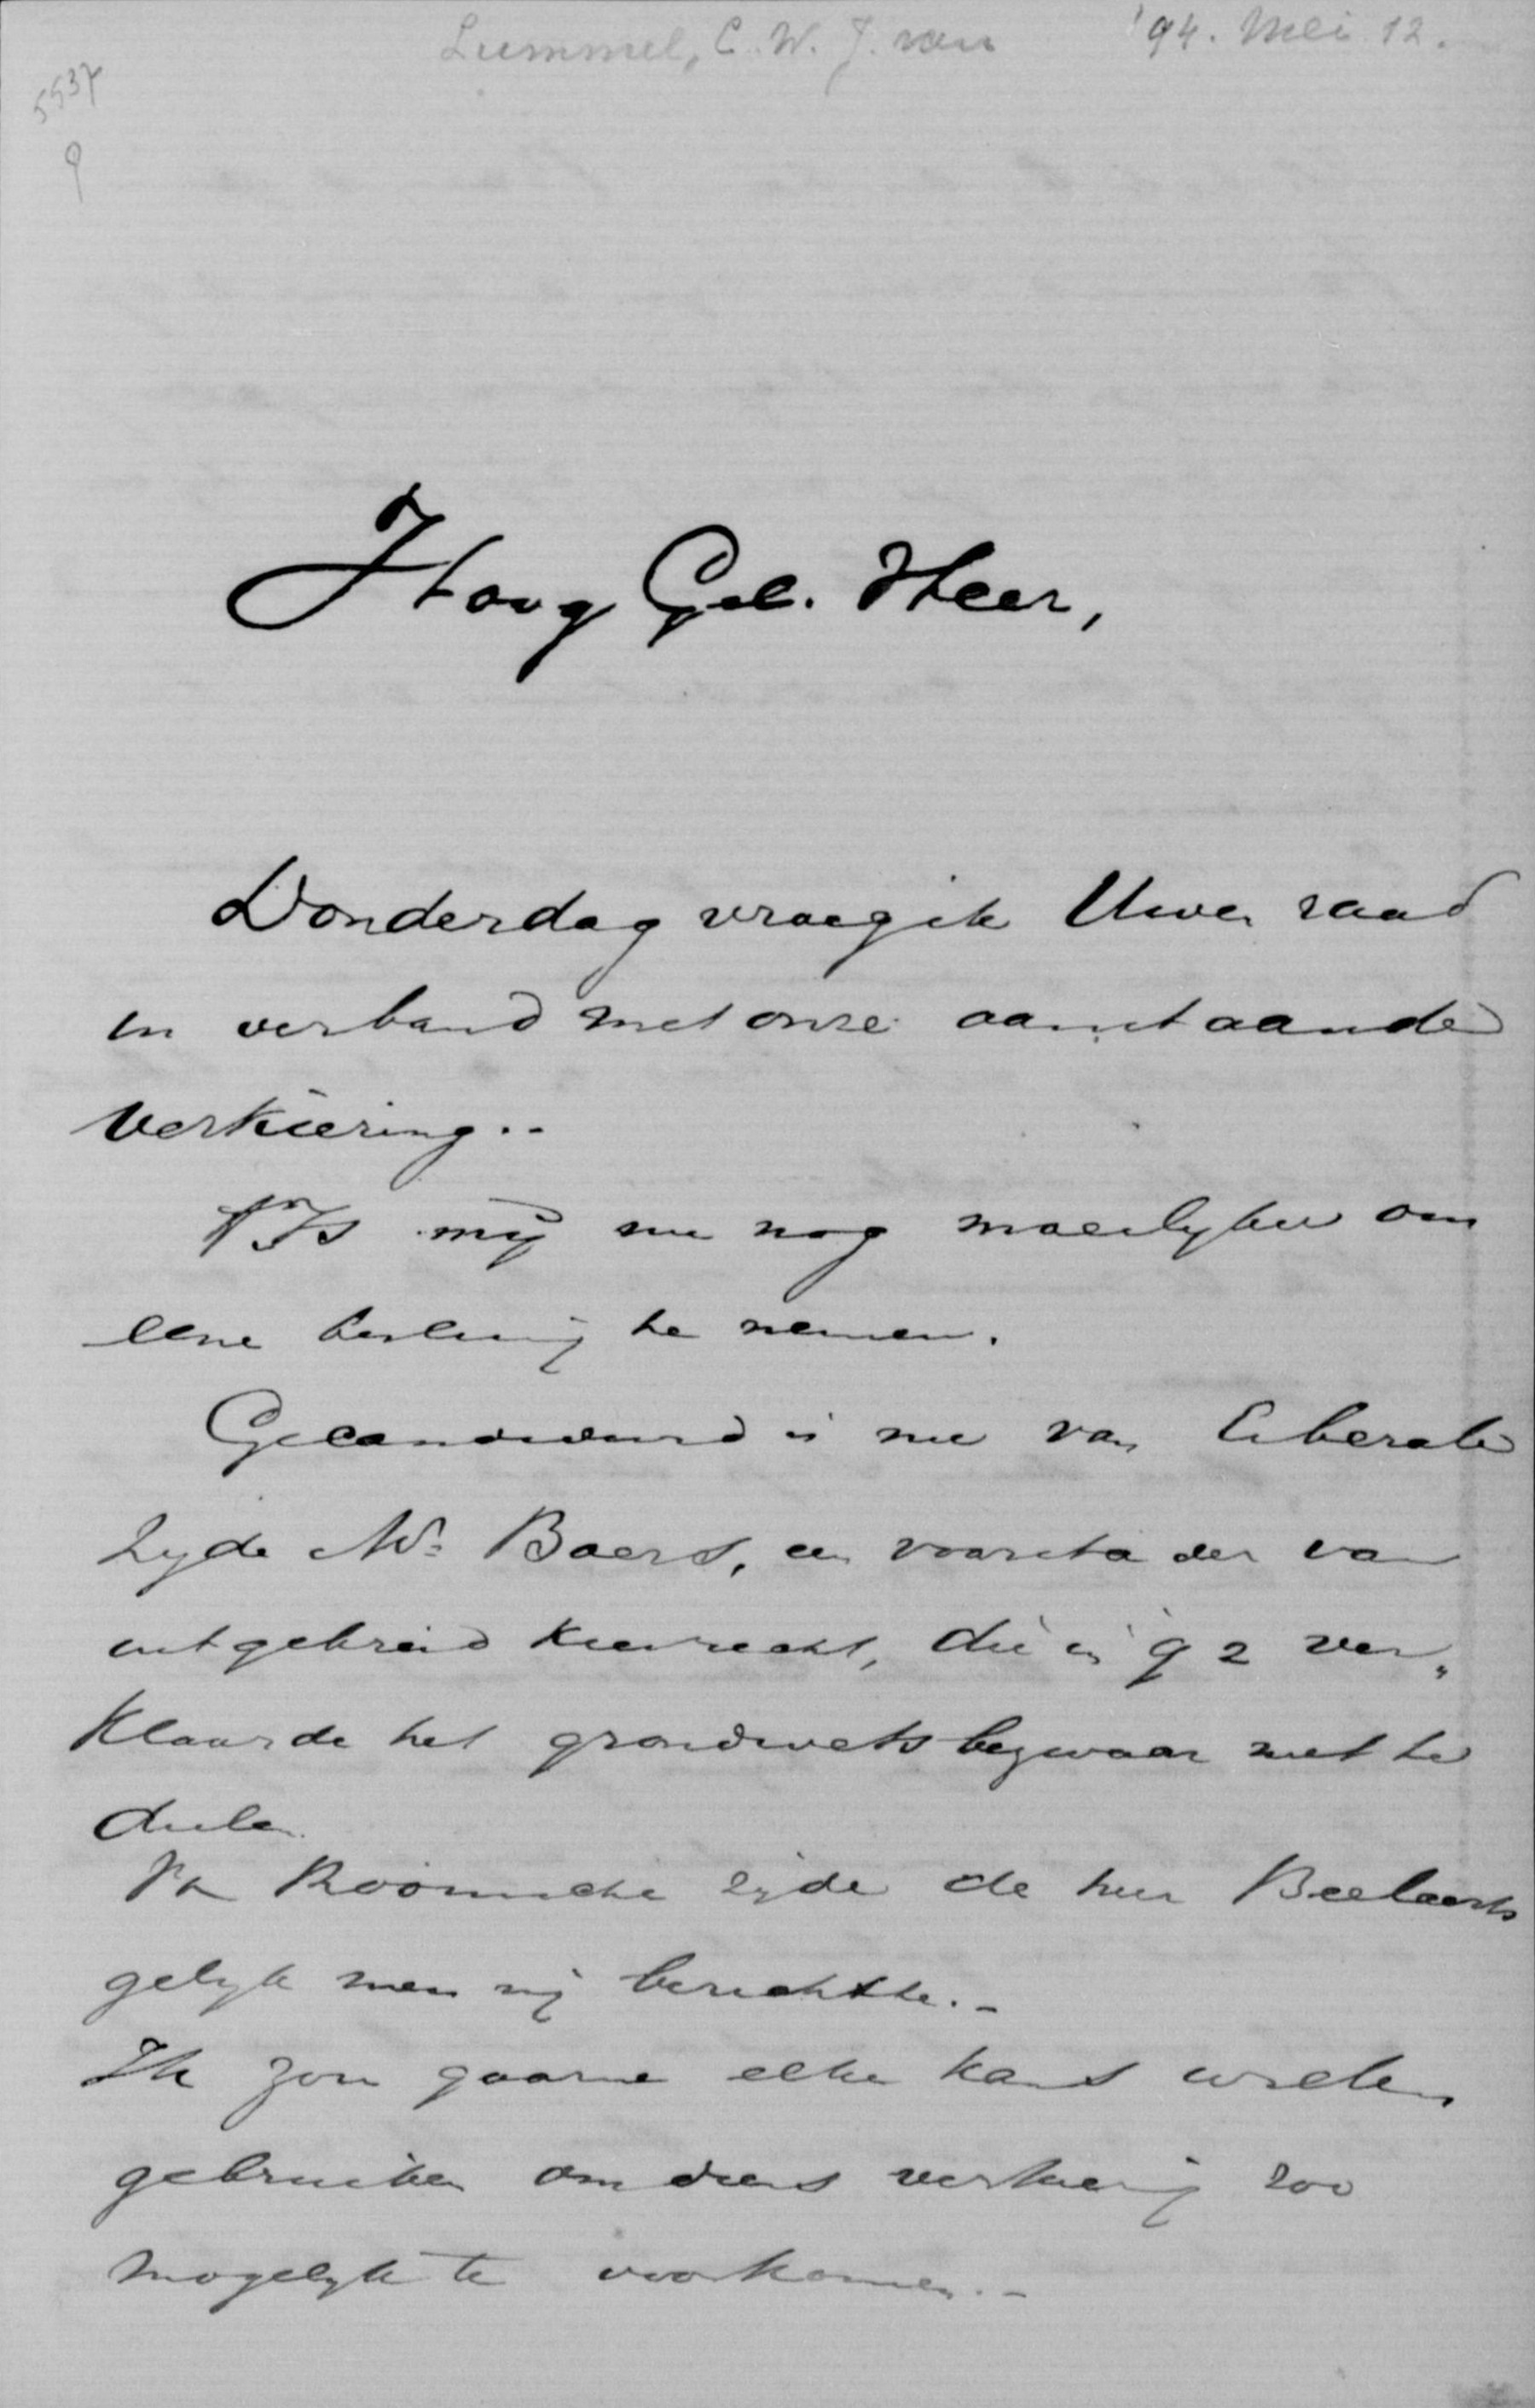 Lummel, C. W. J. van '94. Mei 12.
5537
9
Hoog Gel. Heer,
Donderdag vraeg ik Uwen raad
in verband met onze aanstaande
verkiezing..
't Is mij nu nog moeilyker om
eene beslissing te nemen.
Gecandideerd is nu van liberale
zyde Mr. Baers, een voorstander van
uitgebreid kiesrecht, die in '92 ver„
klaarde het grondwetsbezwaar niet te
deelen.
Va Roomsche zyde de heer Beelaerts
gelyk men mij berichtte.-
Ik zou gaarne elke kans willen
gebruiken om diens verkiezing zoo
mogelyk te voorkomen.-